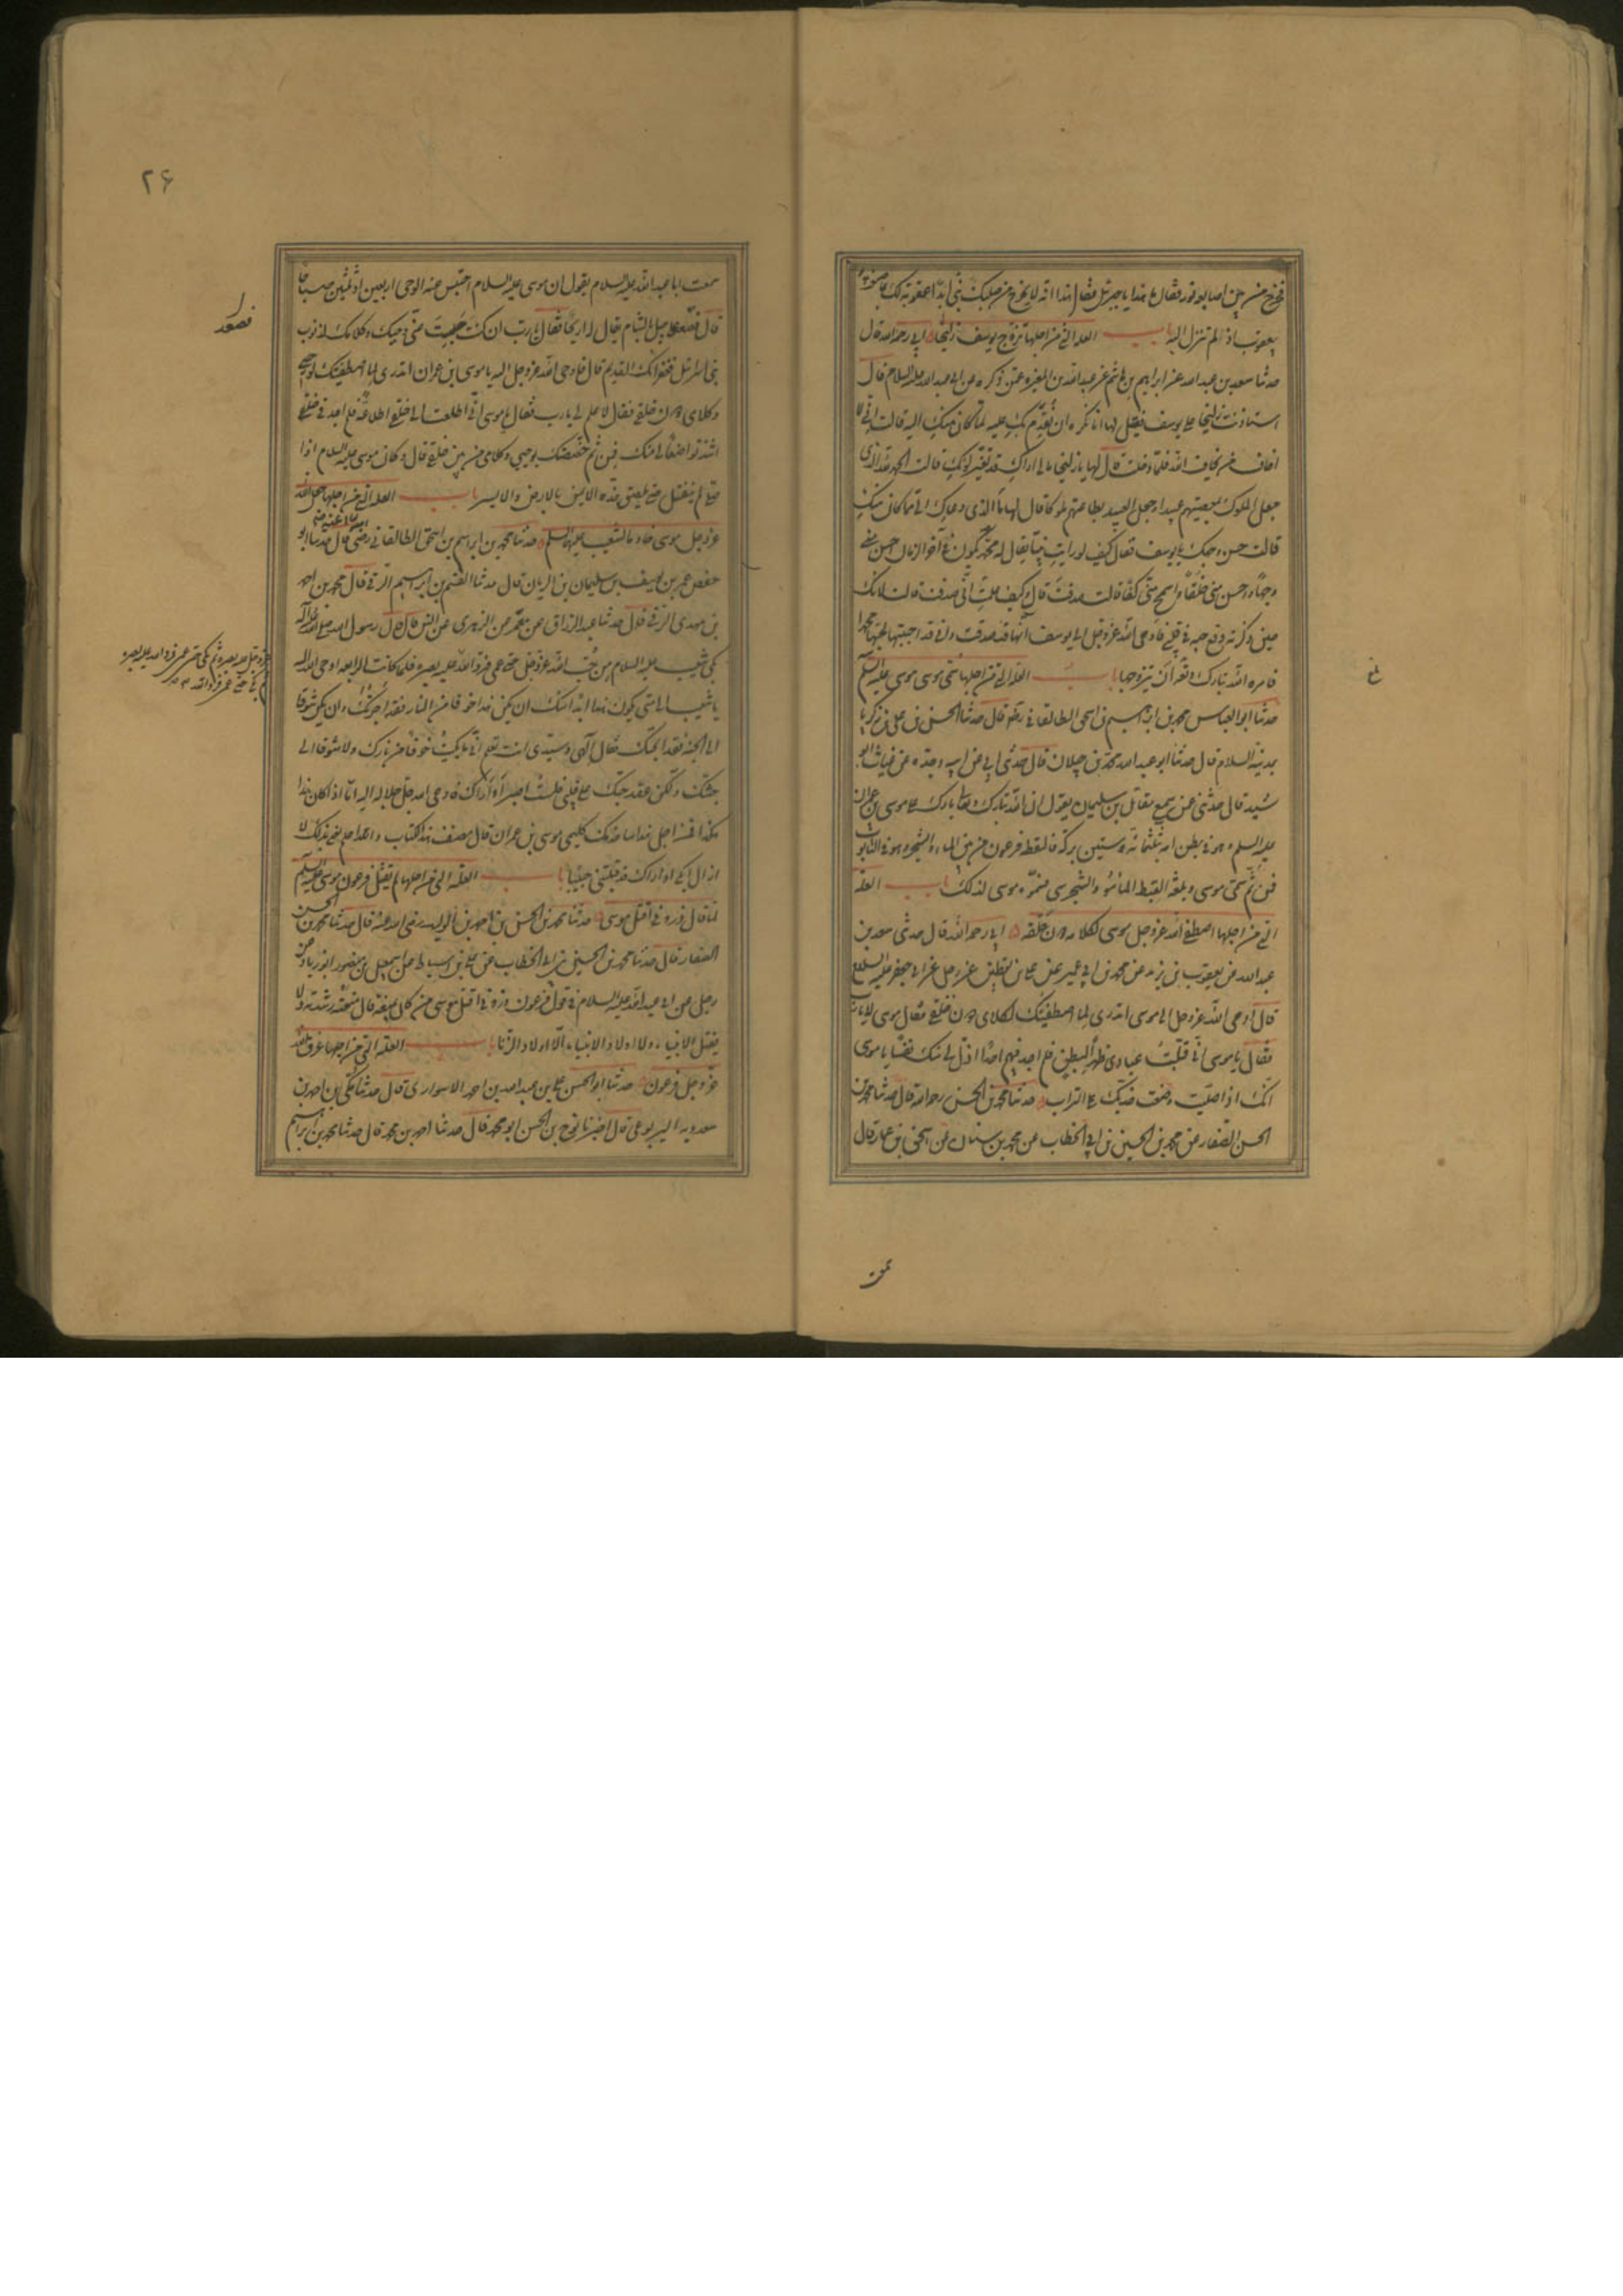 فخرج من بين اصابعه نور فقال ما هذا يا جبرئيل فقال هذا انه لا يخرج من صلبك نبي ابدا عقوبة لك بما صنعت
بيعقوب اذ لم تنزل اليه باب العلة التي من اجلها تزوج يوسف زليخا ابي رحمه الله قال
حدثنا سعد بن عبد الله عن ابراهيم بن هاشم عن عبد الله بن المغيرة عمن ذكره عن ابي عبد الله عليه السلام قال
استاذنت زليخا على يوسف فقيل لها انا نكره ان نقدم بك عليه لما كان منك اليه قالت اني لا
اخاف من يخاف الله فلما دخلت قال لها يا زليخا ما لي اراك قد تغير لونك قالت الحمد لله الذي
جعل الملوك بمعصيتهم عبيدا وجعل العبيد بطاعتهم ملوكا قال لها ما الذي دعاك الى ما كان منك
قالت حسن وجهك يا يوسف فقال كيف لو رايت نبيا يقال له محمد يكون في آخر الزمان احسن مني
وجها واحسن مني خلقا واسمح مني كفا قالت صدقت قال وكيف علمت اني صدقت قالت لانك
حين ذكرته وقع حبه في قلبي فاوحى الله عز وجل الى يوسف انها قد صدقت واني قد احببتها لحبها محمدا
فامره الله تبارك وتعالى ان يتزوجها باب العلة التي من اجلها سمي موسى موسى عليه السلام
حدثنا ابو العباس محمد بن ابراهيم بن اسحق الطالقاني قال حدثنا الحسن بن علي بن زكريا
بمدينة السلام قال حدثنا ابو عبد الله محمد بن خيلان قال حدثني ابي عن ابيه وجده عن غياث بن
اسيد قال حدثني عمن سمع مقاتل بن سليمان يقول ان الله تبارك وتعالى بارك على موسى بن عمران
عليه السلم وهو في بطن امه بثلثمائة وستين بركة فالتقطه فرعون من بين الماء والشجر وهو في التابوت
فمن ثم سمي موسى وبلغة القبط الما مو والشجر سى فسموه موسى لذلك باب العلة
التي من اجلها اصطفى الله عز وجل موسى لكلامه دون خلقه ابي رحمه الله قال حدثني سعد بن
عبد الله عن يعقوب بن يزيد عن محمد بن ابي عمير عن علي بن يقطين عن رجل عن ابي جعفر عليه السلام
قال اوحى الله عز وجل الى موسى اتدري لما اصطفيتك لكلامي دون خلقي فقال موسى لا يا رب
فقال يا موسى اني قلبت عبادي ظهرا لبطن فلم اجد فيهم احدا اذل لي منك نفسا يا موسى
انك اذا صليت وضعت خديك على التراب حدثنا محمد بن الحسن رحمه الله قال حدثنا محمد بن
الحسن الصفار عن محمد بن الحسين بن ابي الخطاب عن محمد بن سنان عن اسحق بن عمار قال
سمعت
٢۶
سمعت ابا عبد الله عليه السلام يقول ان موسى عليه السلام احتبس عنه الوحي اربعين او ثلثين صباحا
قال فصعد على جبل بالشام يقال له اريحا فقال يا رب ان كنت حبست عني وحيك وكلامك لذنوب
بني اسرائيل فغفرانك القديم قال فاوحى الله عز وجل اليه يا موسى ابن عمران اتدري لما اصطفيتك لوحيي
وكلامي دون خلقي فقال لا علم لي يا رب فقال يا موسى اني اطلعت الى خلقي اطلاعة فلم اجد في خلقي
اشد تواضعا لي منك فمن ثم خصصتك بوحيي وكلامي من بين خلقي قال وكان موسى عليه السلام اذا
صلى لم ينفتل حتى يلصق خده الايمن بالارض والايسر باب العلة التي من اجلها جعل الله
عز وجل موسى خادما لشعيب عليهما السلم حدثنا محمد بن ابراهيم بن اسحق الطالقاني رضي قال حدثنا ابو
حفص عمر بن يوسف بن سليمان بن الريان قال حدثنا القسم بن ابراهيم الرقي قال محمد بن احمد
بن مهدي الرقي قال حدثنا عبد الرزاق عن معمر عن الزهري عن انس قال قال رسول الله صلى الله عليه وآله
بكى شعيب عليه السلام من حب الله عز وجل حتى عمي فرد الله عليه بصره فلما كانت الرابعة اوحى الله اليه
يا شعيب الى متى يكون هذا ابدا منك ان يكن هذا خوفا من النار فقد اجرتك وان يكن شوقا
الى الجنة فقد ابحتك فقال الهي وسيدي انت تعلم اني ما بكيت خوفا من نارك ولا شوقا الى
جنتك ولكن عقد حبك على قلبي فلست اصبر او اراك فاوحى الله جل جلاله اليه اما اذا كان هذا
هكذا فمن اجل هذا ساخدمك كليمي موسى بن عمران قال مصنف هذا الكتاب والله اعلم يعني بذلك لا
ازال ابكي او اراك قد قبلتني حبيبا باب العلة التي من اجلها لم يقتل فرعون موسى عليه السلم
لما قال ذروني اقتل موسى حدثنا محمد بن الحسن بن احمد بن الوليد رضي الله عنه قال حدثنا محمد بن الحسن
الصفار قال حدثنا محمد بن الحسين بن ابي الخطاب عن علي بن اسباط عن اسمعيل بن منصور ابو زياد عن
رجل عن ابي عبد الله عليه السلام في قول فرعون ذروني اقتل موسى من كان يمنعه قال منعته رشدته ولا
يقتل الانبياء ولا اولاد الانبياء الا اولاد الزنا باب العلة التي من اجلها غرق الله
عز وجل فرعون حدثنا ابو الحسن علي بن عبد الله بن احمد الاسواري قال حدثنا مكي بن احمد بن
سعدويه اليربوعي قال اخبرنا نوح بن الحسن ابو محمد قال حدثنا احمد بن محمد قال حدثنا محمد بن ابراهيم
فصعد